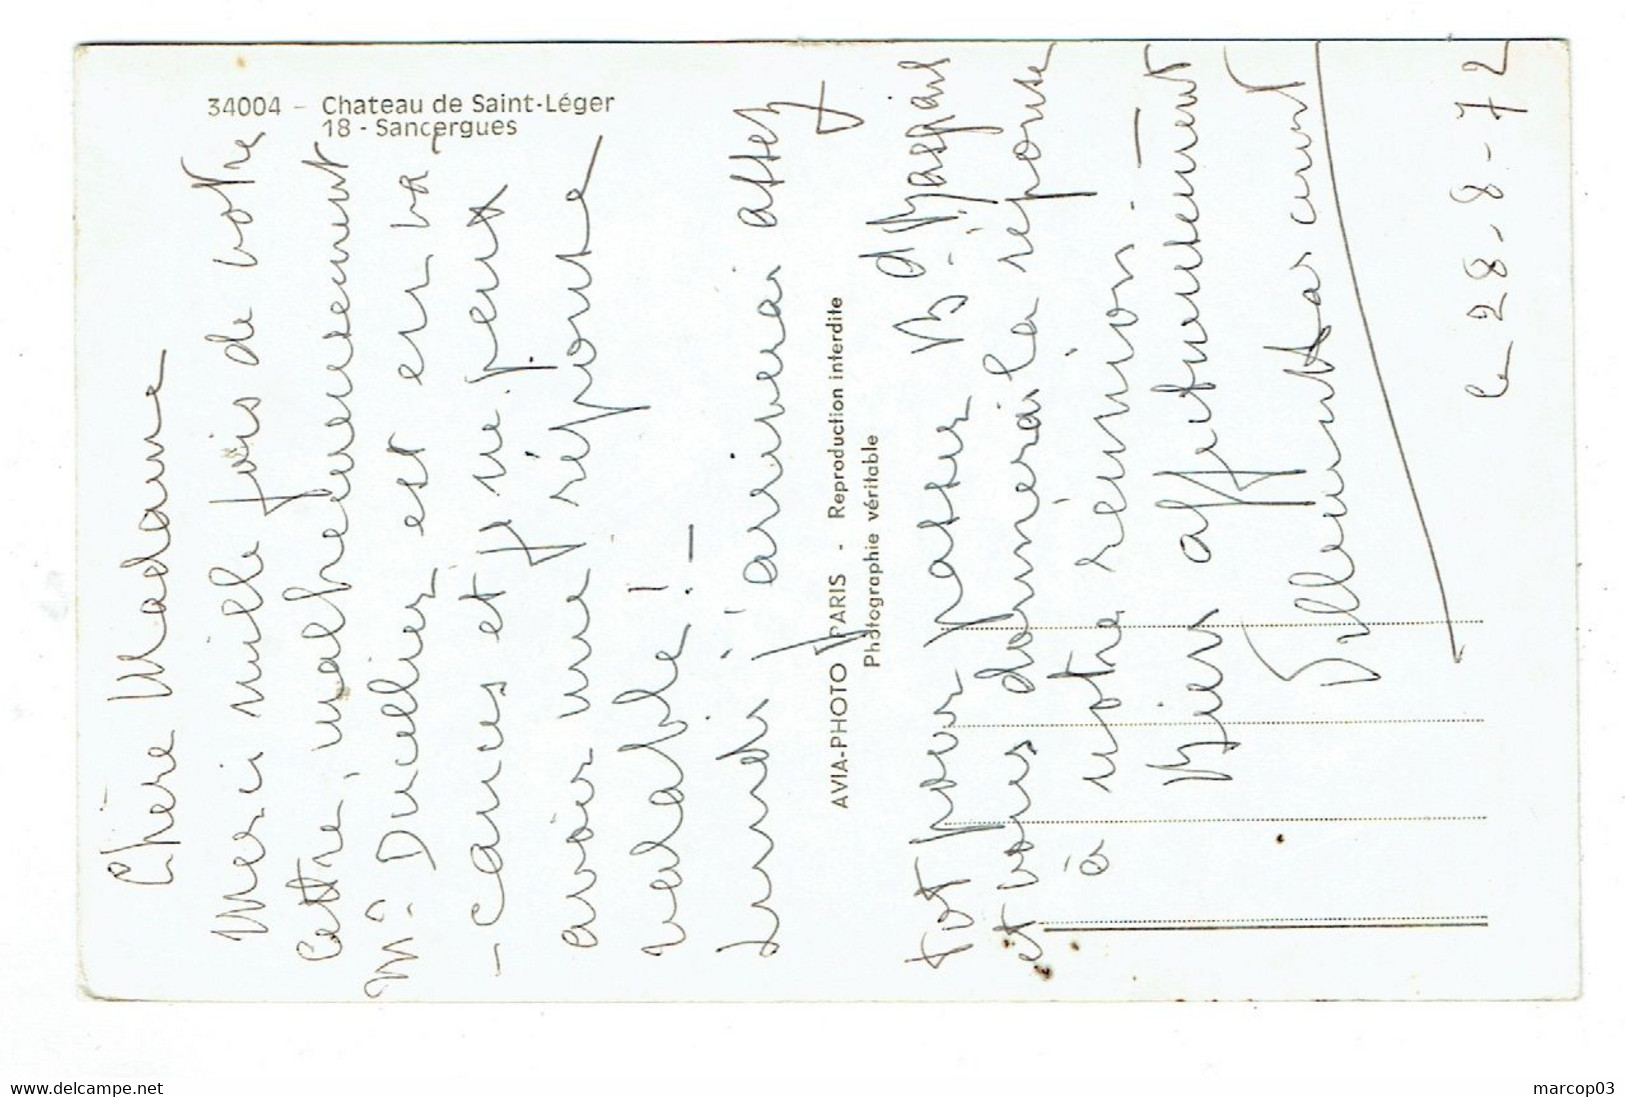 34004 - Chateau de Saint-Léger
18 - Sancergues
Chère Madame
Merci mille fois de votre
lettre, malheureusement
Mr. Ducellier est en va
-cances et je ne peux
avoir une réponse
valable ! -
Lundi j'arriverai assez
tôt pour passer
et vous donnerai la réponse
à notre réunion -
Bien affectueusement
le 28-8-72
AVIA-PHOTO PARIS - Reproduction interdite
Photographie véritable
www.delcampe.net
marcop03